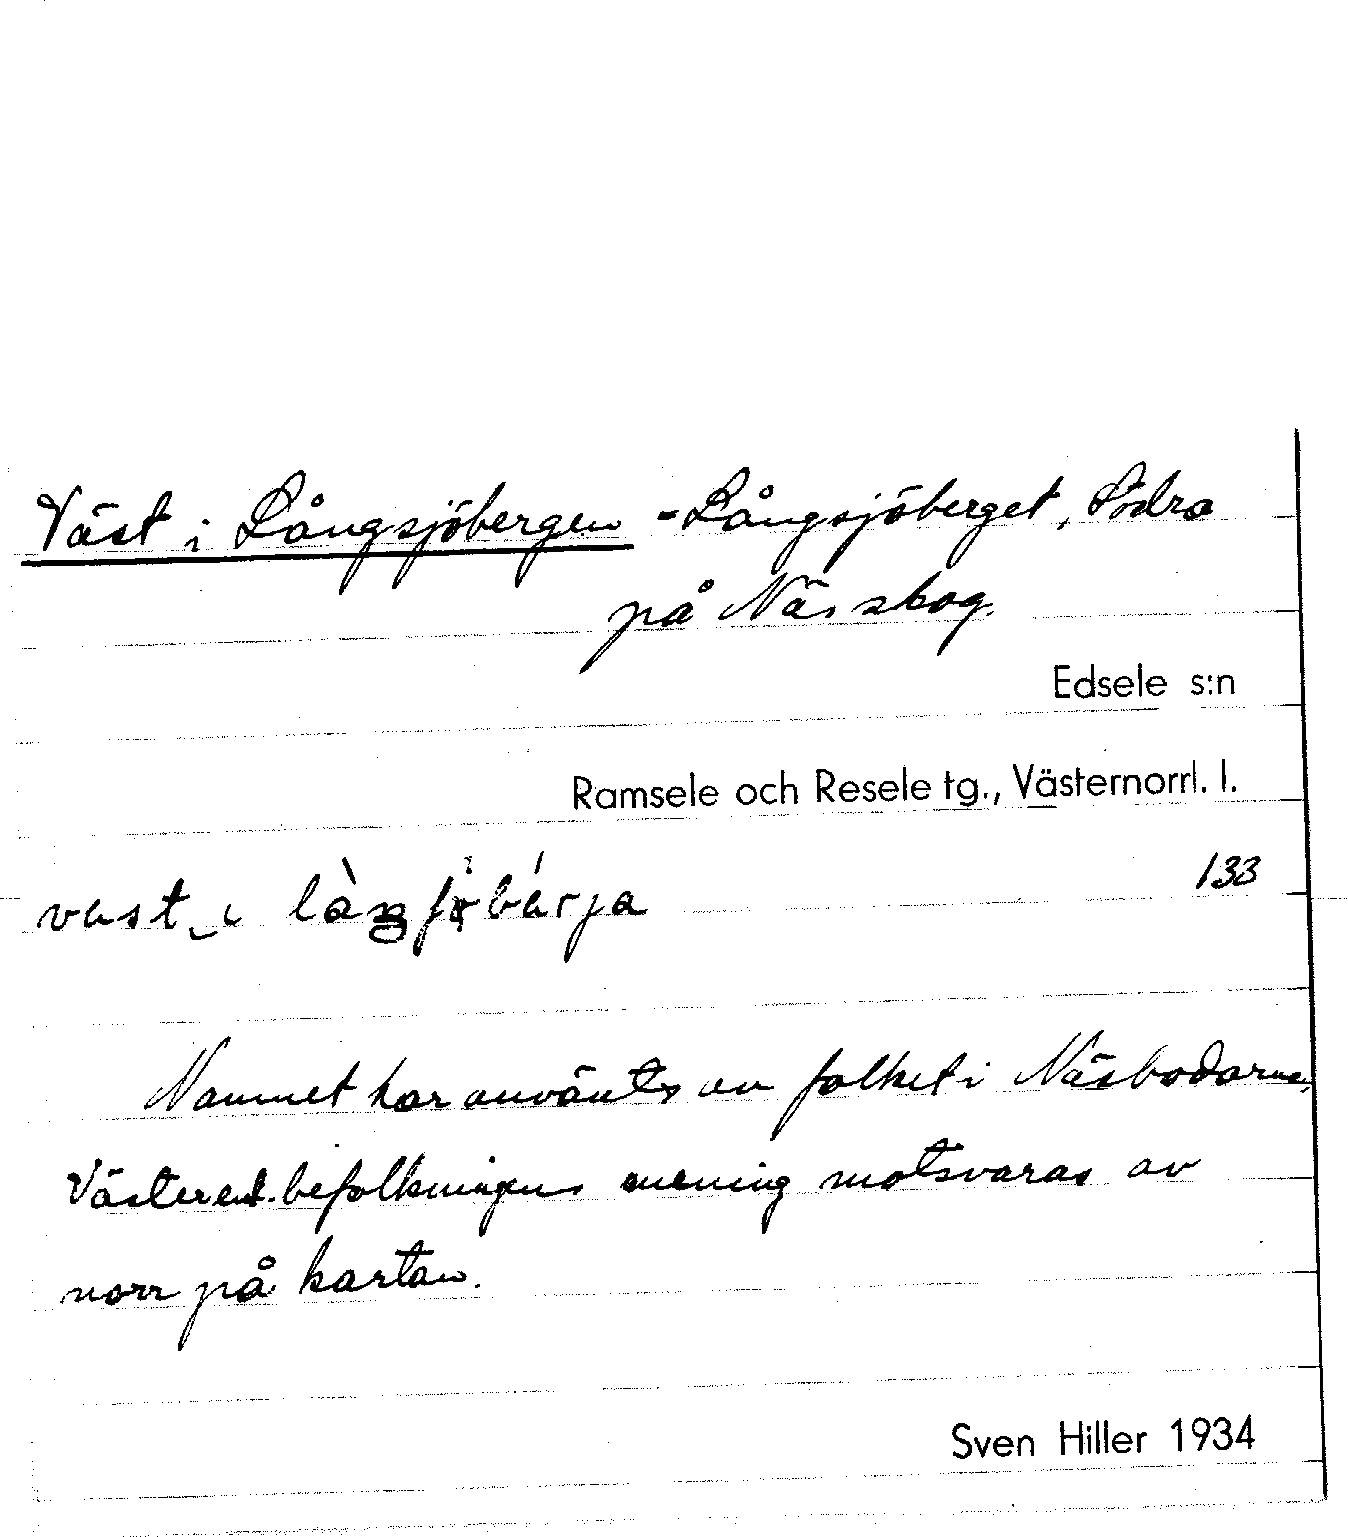 Väst i Långsjöbergen = Långsjöberget, Södra
på Näs skog.
Edsele s:n
Ramsele och Resele tg., Västernorrl. l.
133
Namnet har använts av folket i Näsbodarna,
befolkningens mening motsvaras av
norr på kartan.
Sven Hiller 1934